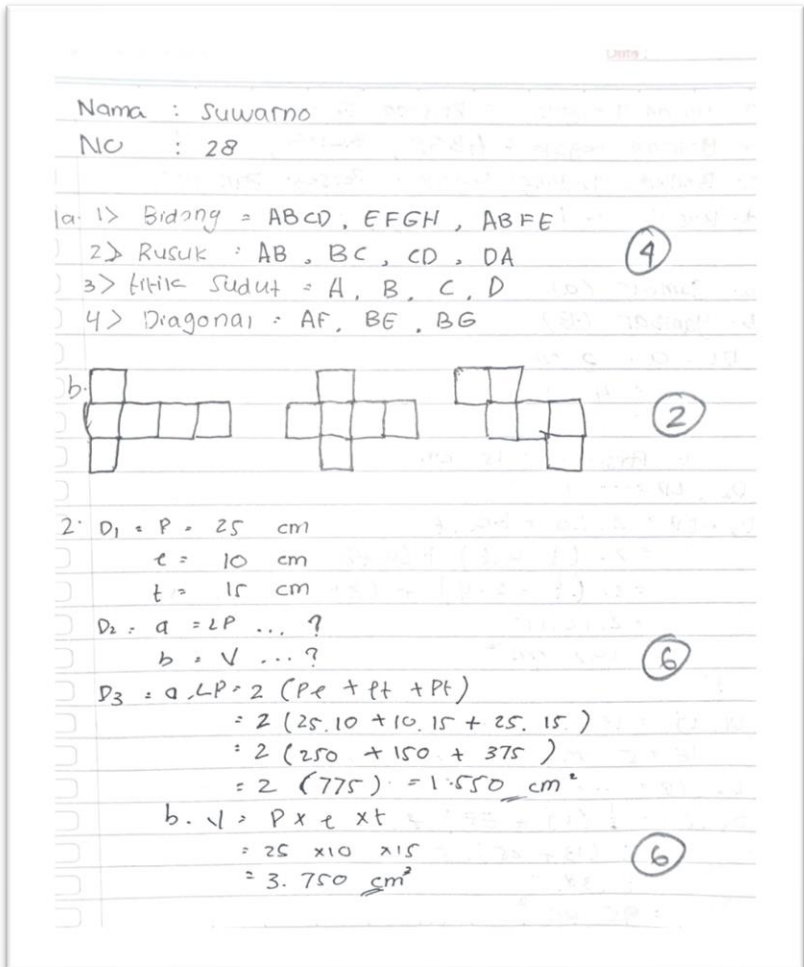 Date :
Nama : Suwarno
NO : 28
1a. 1> Bidang = ABCD, EFGH, ABFE
2> Rusuk : AB, BC, CD, DA
4
3> titik Sudut = A, B, C, D
4> Diagonal : AF, BE, BG
b.
2
2. D1 = P = 25 cm
l = 10 cm
t = 15 cm
D2 : a = LP ... ?
b = V ... ?
6
D3 : a. LP = 2 (Pl + lt + Pt)
= 2 (25.10 + 10.15 + 25.15)
= 2 (250 + 150 + 375)
= 2 (775) = 1.550 cm²
b. V = P x l x t
= 25 x10 x15
6
= 3.750 cm³